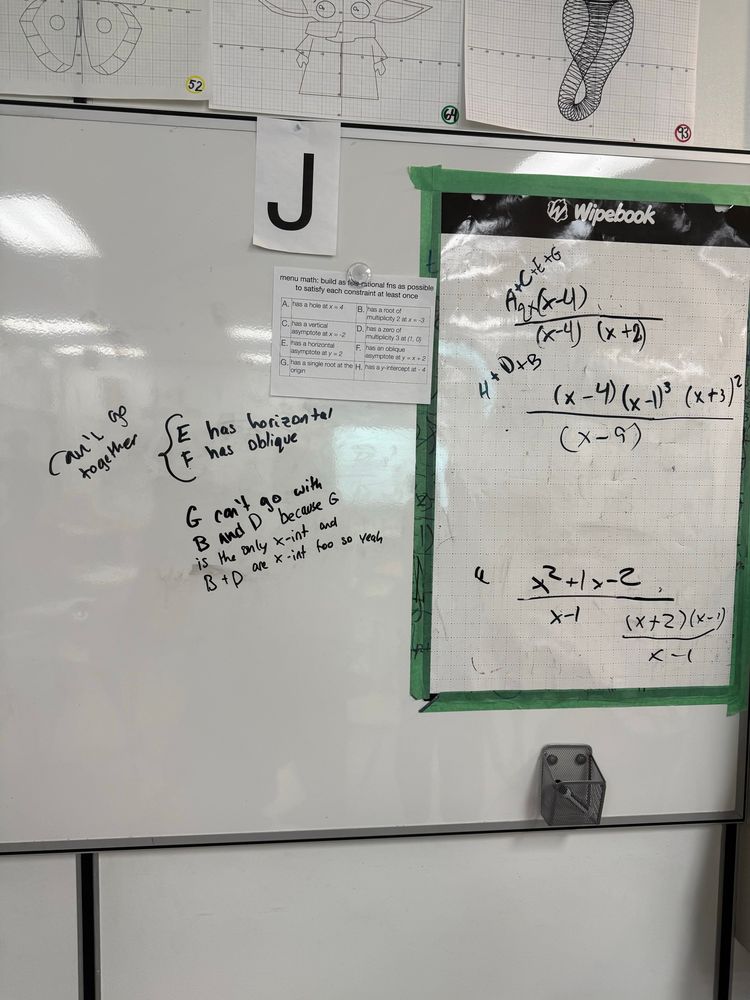 52
64
93
J
Wipebook
menu math: build as few rational fns as possible
to satisfy each constraint at least once
A. has a hole at x = 4
B. has a root of multiplicity 2 at x = -3
C. has a vertical asymptote at x = -2
D. has a zero of multiplicity 3 at (1, 0)
E. has a horizontal asymptote at y = 2
F. has an oblique asymptote at y = x + 2
G. has a single root at the origin
H. has a y-intercept at - 4
Can't go
together
E has horizontal
F has oblique
G can't go with
B and D because G
is the only x-int and
B + D are x-int too so yeah
A+C+E+G
2x(x-4)
(x-4) (x+2)
H+D+B
(x-4)(x-1)³ (x+3)²
(x-9)
x²+1x-2
x-1
(x+2)(x-1)
x-1